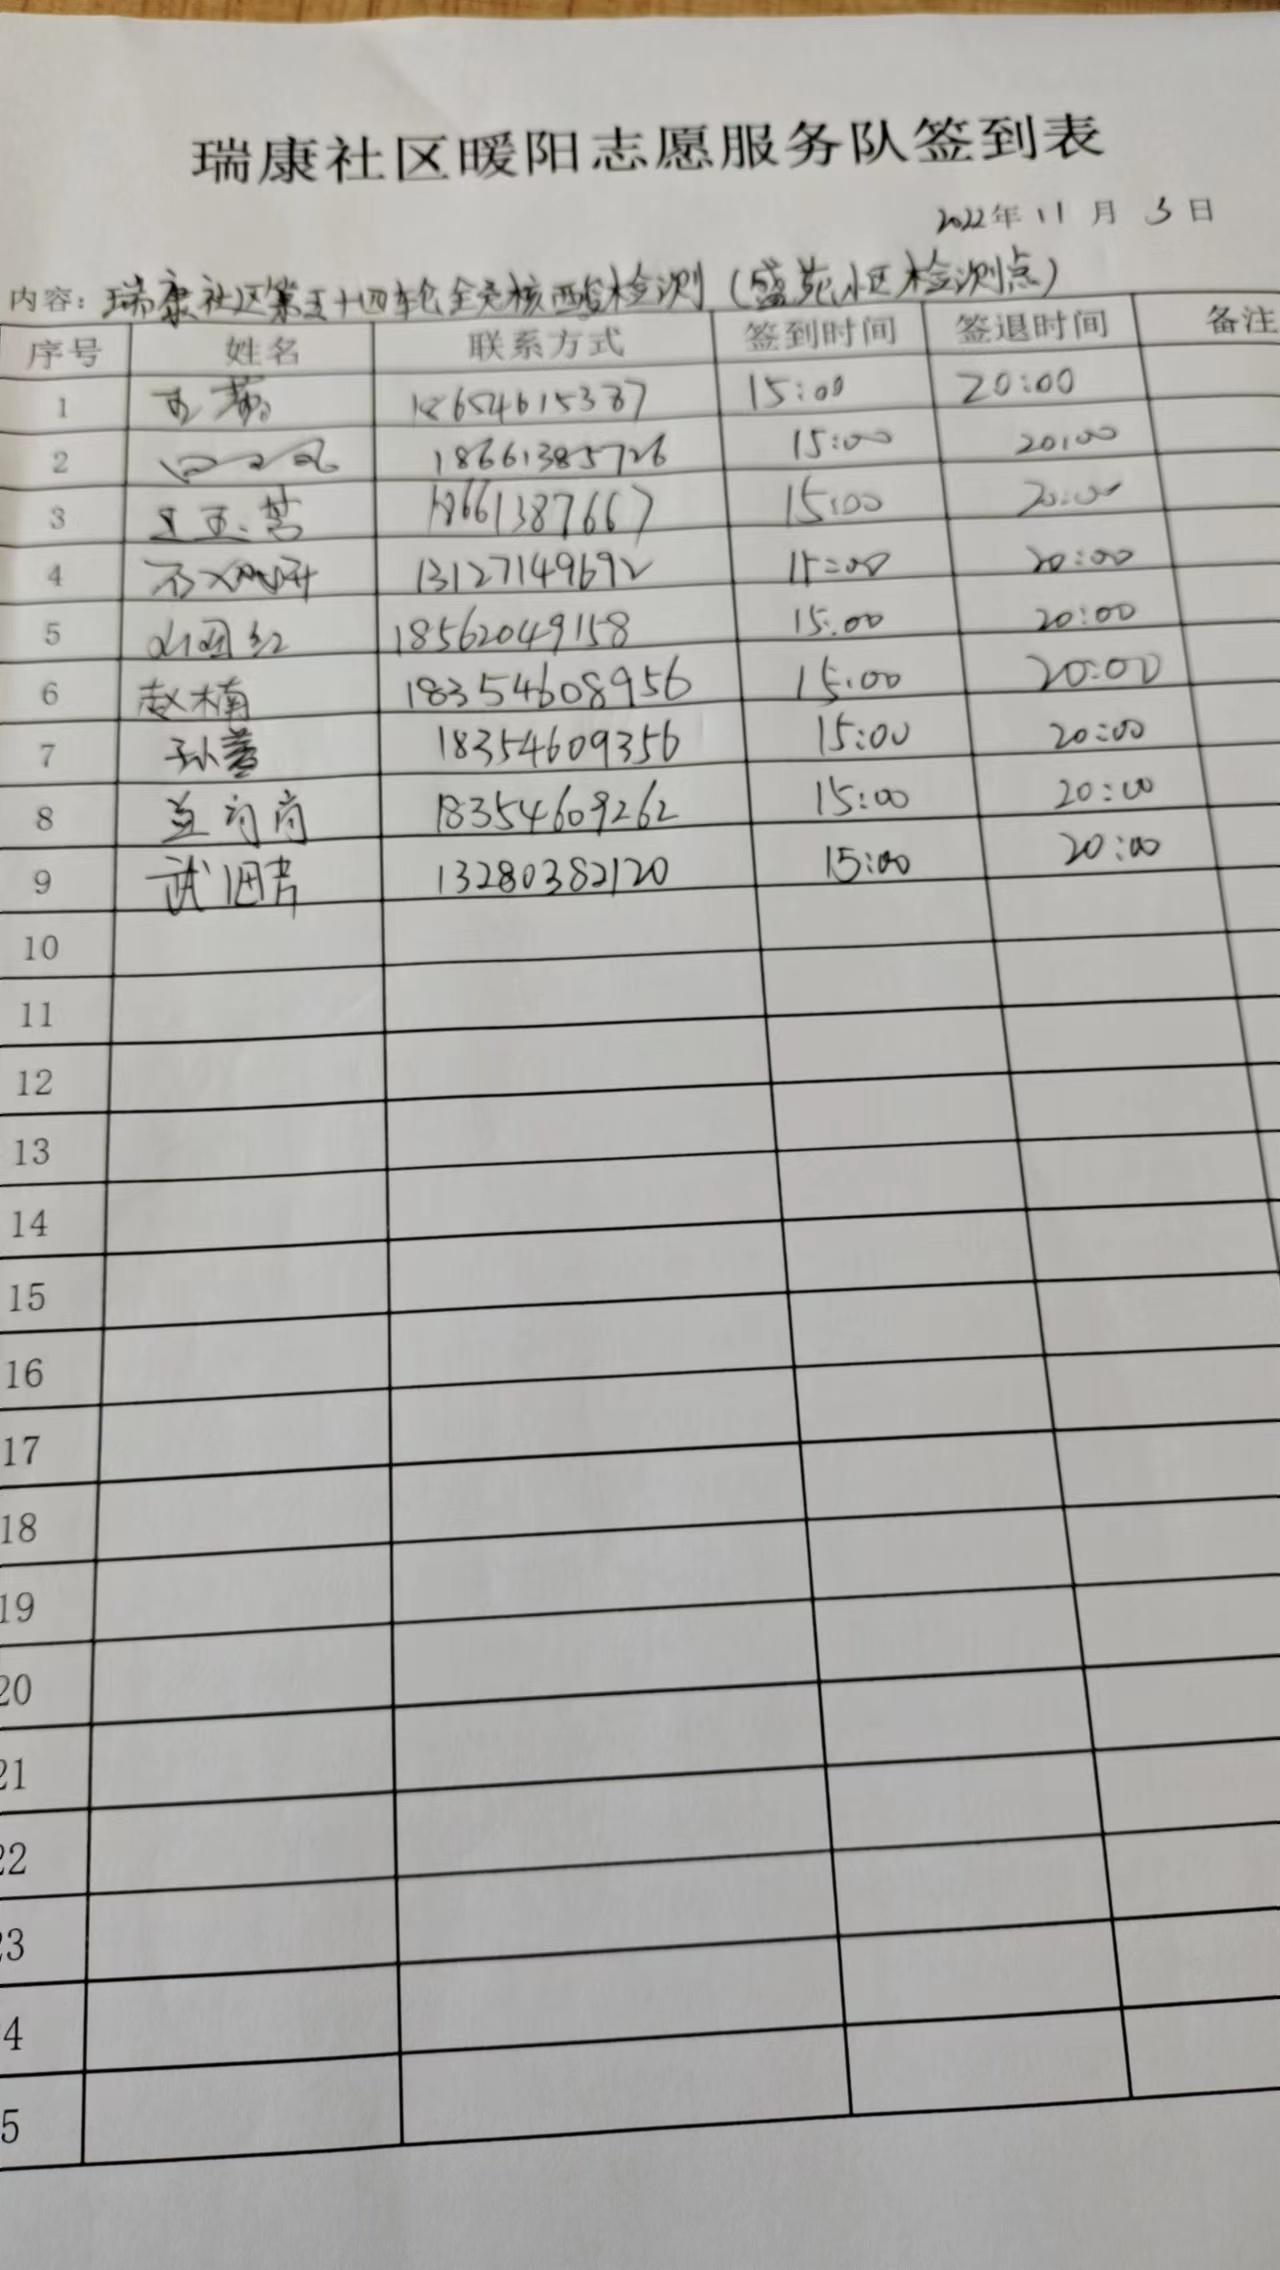 瑞康社区暖阳志愿服务队签到表
2022年 11 月 3 日
内容：瑞康社区第五十四轮全员核酸检测（盛苑小区检测点）
序号 姓名 联系方式 签到时间 签退时间 备注
1 18654615387 15:00 20:00
2 18661385726 15:00 20:00
3 18661387667 15:00 20:00
4 13127149692 15:00 20:00
5 18562049158 15:00 20:00
6 赵楠 18354608956 15:00 20:00
7 孙蕾 18354609356 15:00 20:00
8 18354609262 15:00 20:00
9 13280382120 15:00 20:00
10
11
12
13
14
15
16
17
18
19
20
21
22
23
4
5